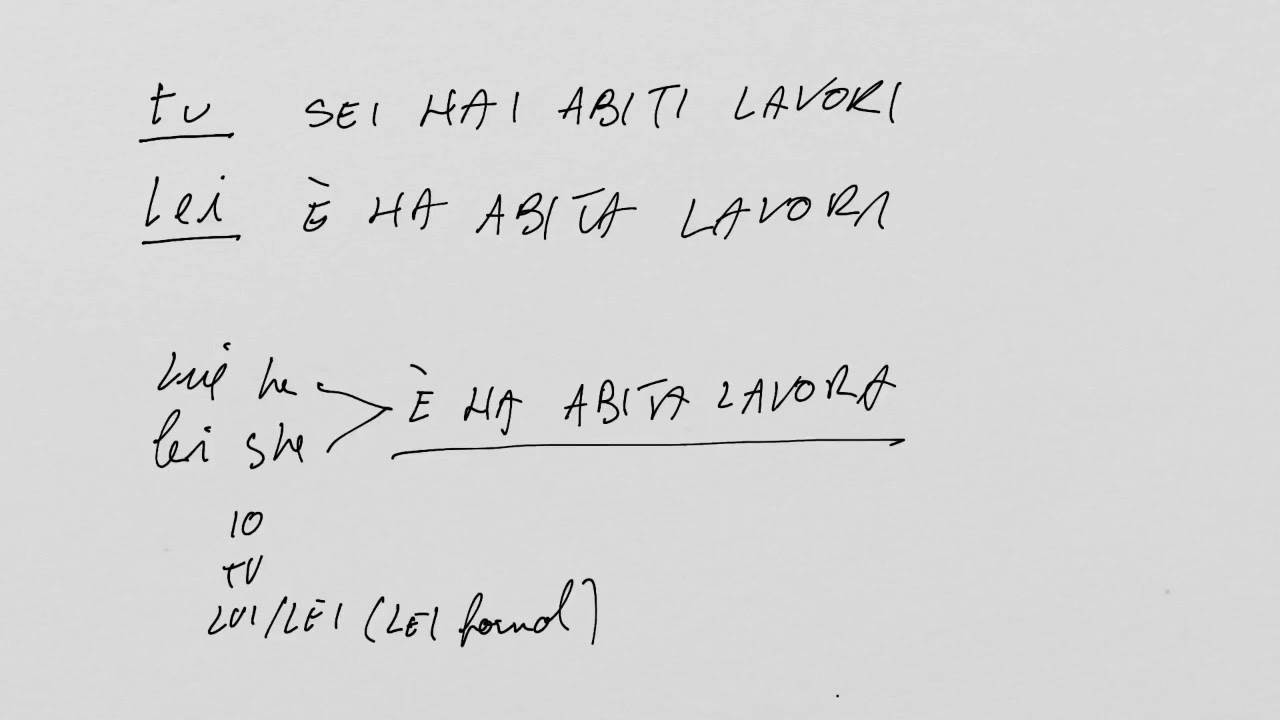 tu SEI HAI ABITI LAVORI
Lei È HA ABITA LAVORA
lui he
lei she
È HA ABITA LAVORA
IO
TU
LUI/LEI (LEI formal)